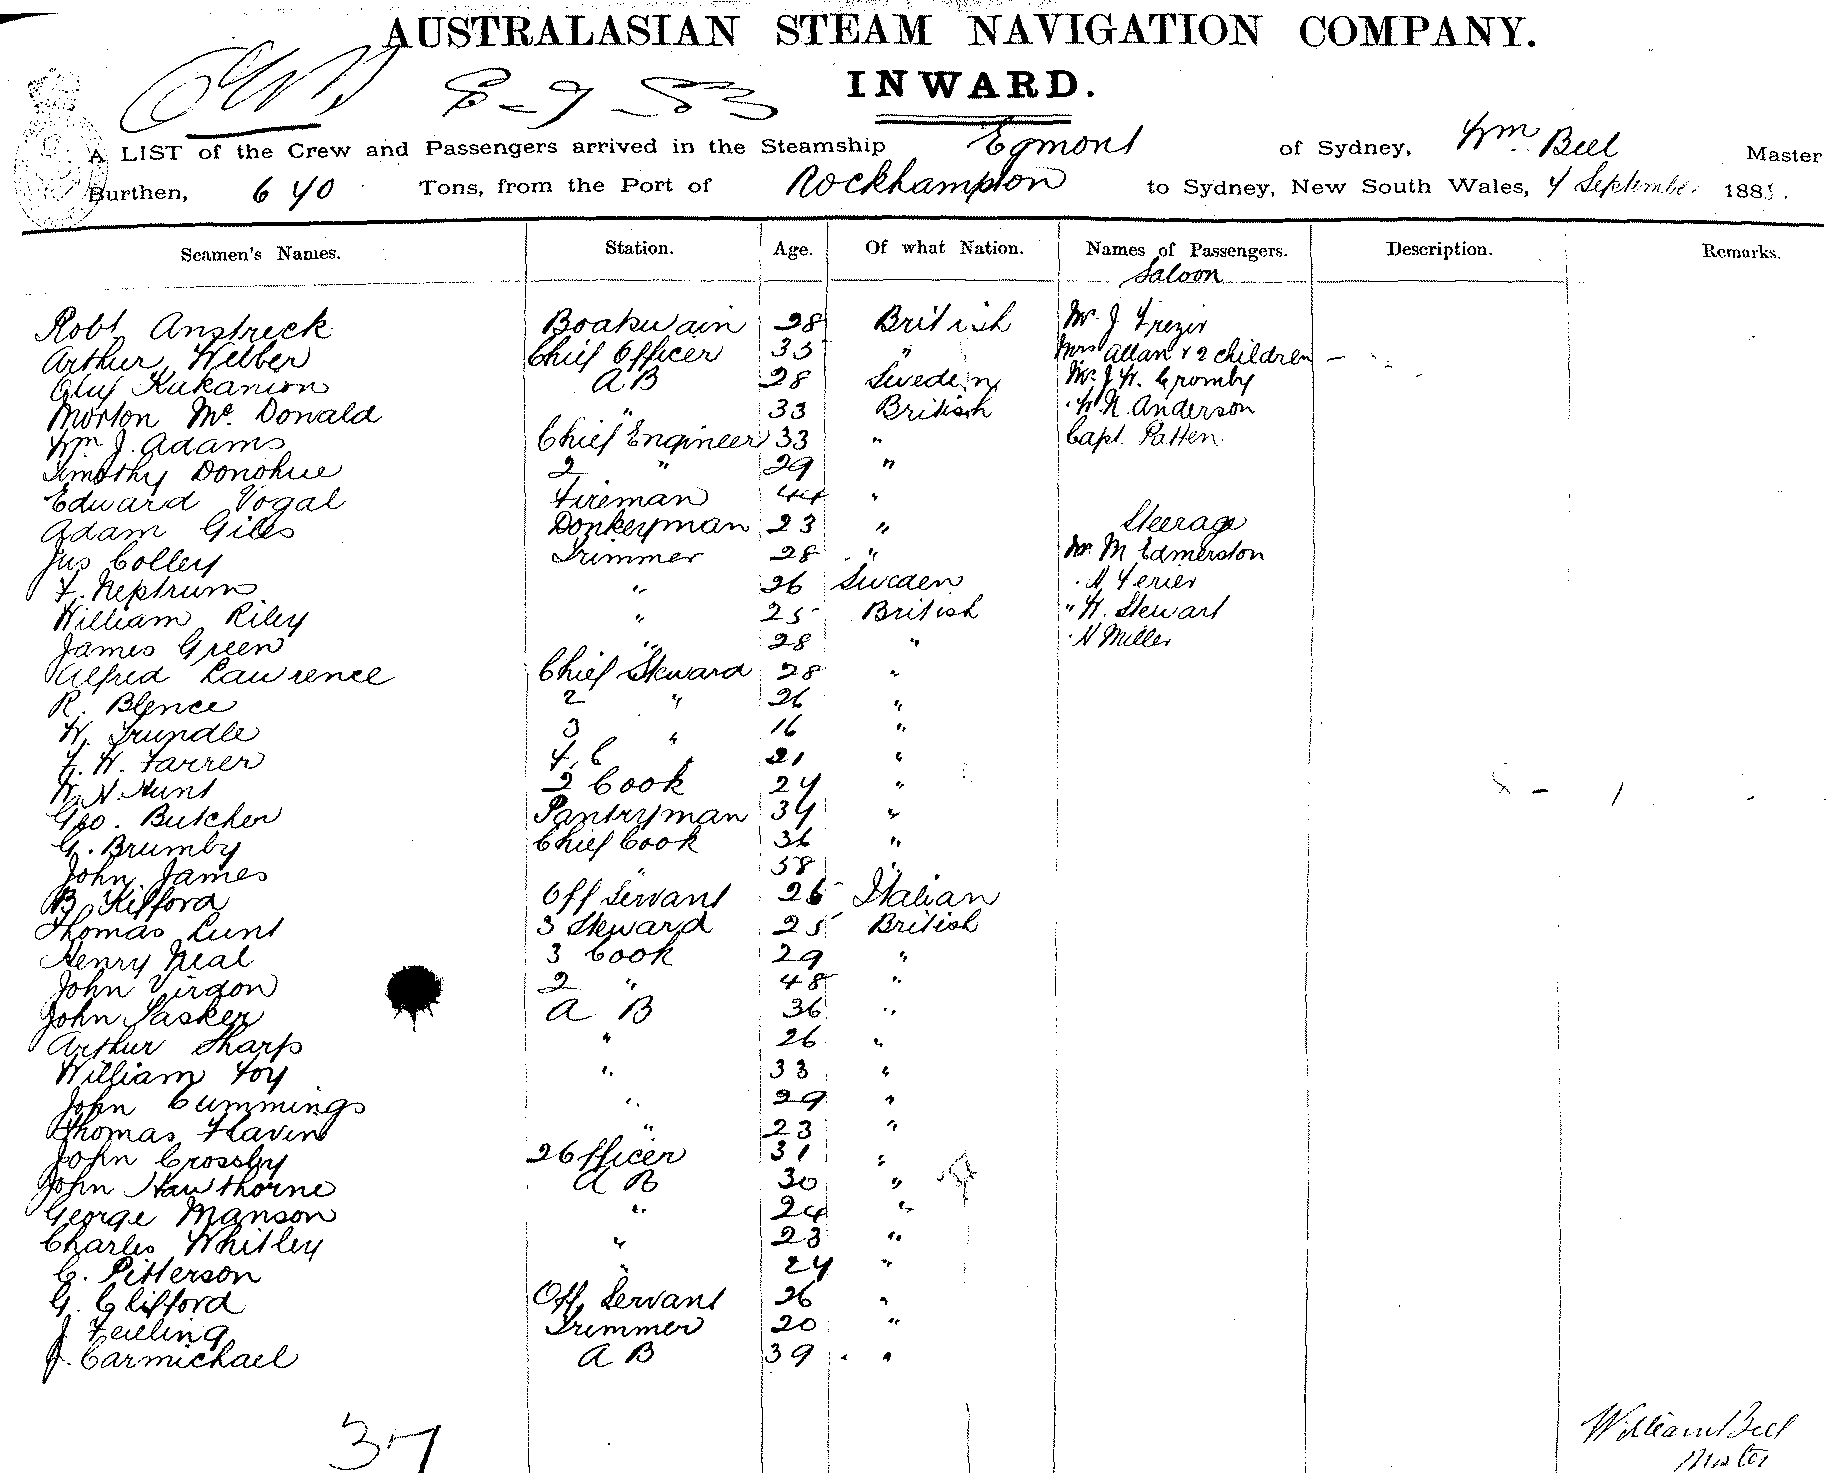 AUSTRALASIAN STEAM NAVIGATION COMPANY.
INWARD.
A LIST of the Crew and Passengers arrived in the Steamship Egmont of Sydney, Wm Bell Master
Burthen, 640 Tons, from the Port of Rockhampton to Sydney, New South Wales, 4 September 188
Seamen's Names. Station. Age. Of what Nation. Names of Passengers. Description. Remarks.
Saloon
Robt Anstreck Boatswain 28 British Mr. J Frezer
Arthur Webber Chief Officer 35 " Mrs Allan & 2 children
Oluf Kukanion A B 28 Sweden Mr. J. W. Cromby
Morton Mc Donald " 33 British " W N Anderson
Wm J. Adams Chief Engineer 33 " Capt. Patten
Timothy Donohue 2 " 29 "
Edward Vogal Fireman 44 "
Adam Giles Donkeyman 23 " Steerage
Jas Colley Trimmer 28 " Mr M Edmerston
F. Neptrum " 26 Sweden " N Ferier
William Riley " 25 British " W. Stewart
James Green " 28 " " N Miller
Alfred Lawrence Chief Steward 28 "
R. Blence 2 " 26 "
W. Trundle 3 " 16 "
F. W. Farrer F. C " 21 "
W. N. Hunt 2 Cook 24 "
Geo. Butcher Pantryman 34 "
G. Brumby Chief Cook 36 "
John James " 58 "
B. Kifford Off Servant 26 Italian
Thomas Lunt 3 Steward 25 British
Henry Neal 3 Cook 29 "
John Virgon 2 " 48 "
John Tasker A B 36 "
Arthur Sharp " 26 "
William Foy " 33 "
John Cummings " 29 "
Thomas Flavin " 23 "
John Crossby 2 Officer 31 "
John Hawthorne A B 30 "
George Manson " 24 "
Charles Whitley " 23 "
C. Pitterson " 24 "
G. Clifford Off, Servant 26 "
J Teiling Trimmer 20 "
J. Carmichael A B 39 "
37
William Bell
Master